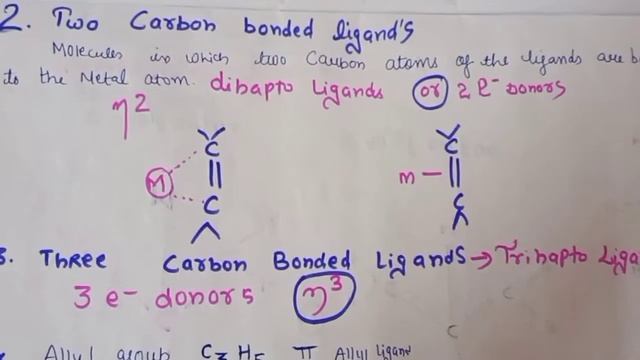 2. Two Carbon bonded ligand's
Molecules in which two Carbon atoms of the ligands are b
to the Metal atom. dihapto Ligands or 2 e⁻ Donors
η²
C C
M m
C C
3. Three Carbon Bonded Ligands → Trihapto Liga
3 e⁻ donors η³
C
C
Allyl group C₃H₅ π Allyl Ligand